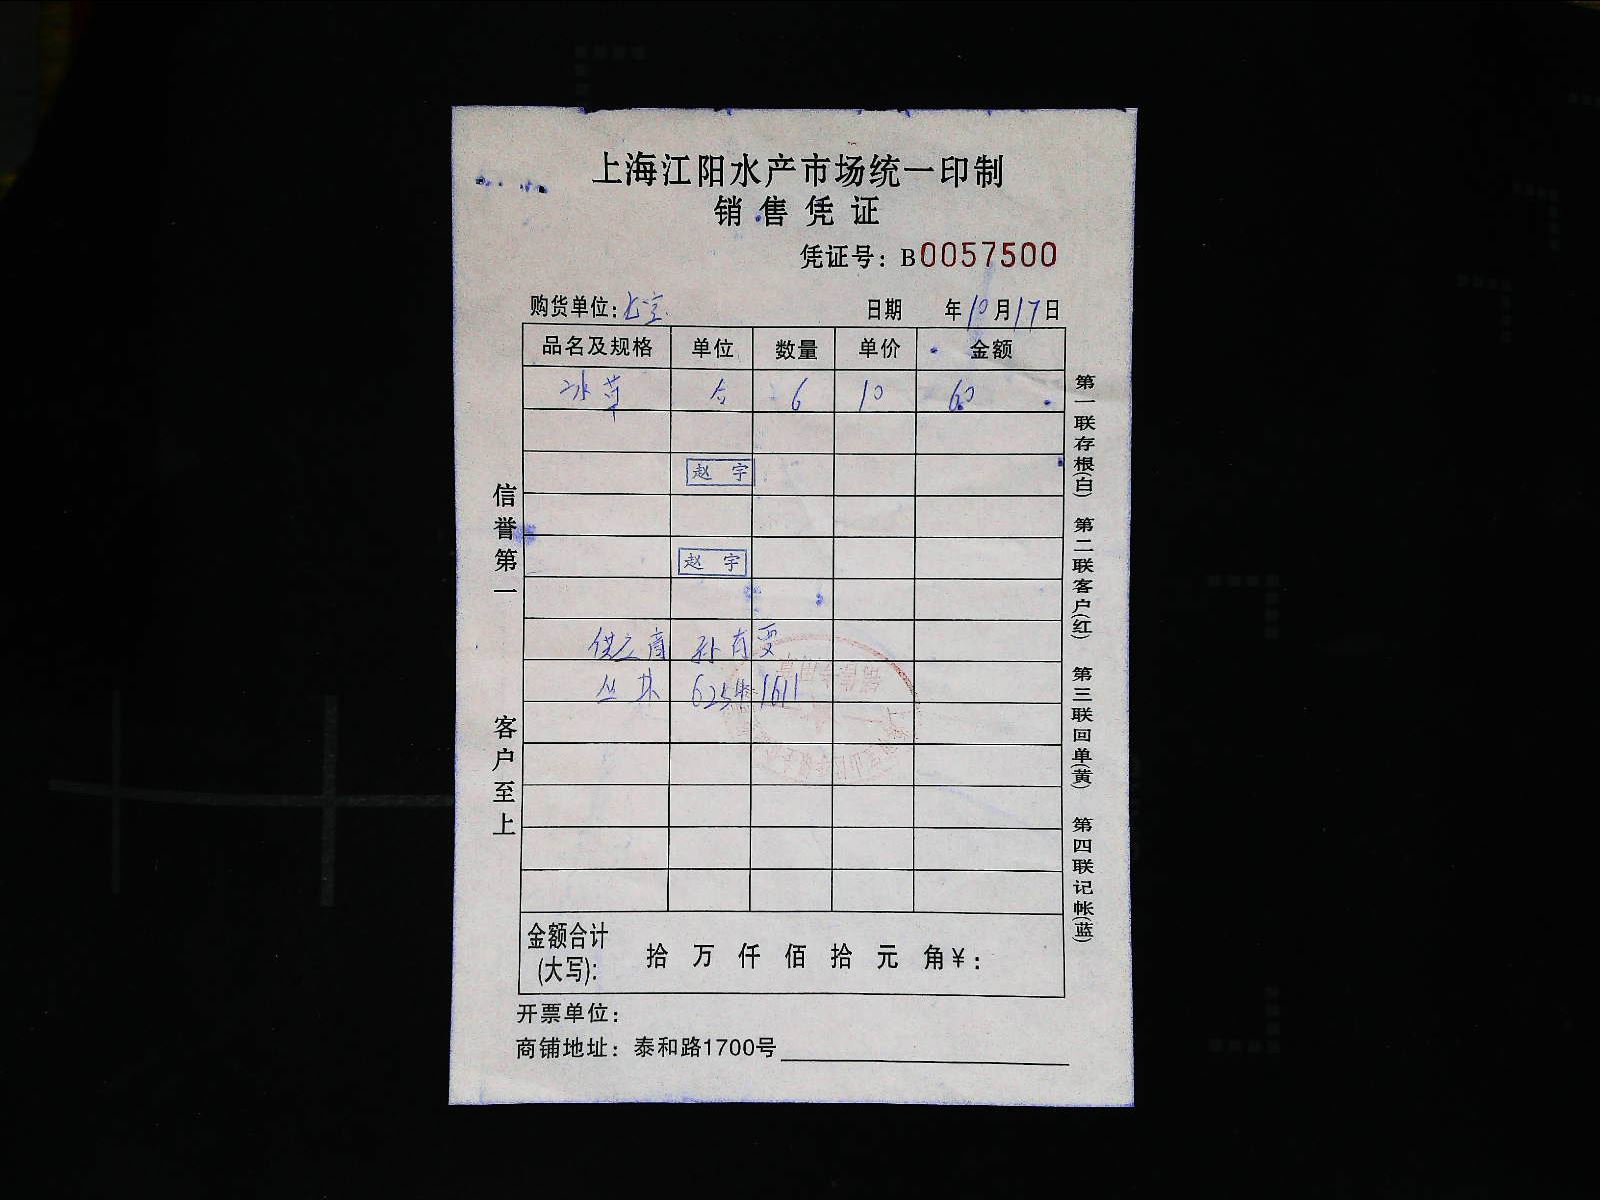 上海江阳水产市场统一印制
销售凭证
凭证号：B0057500
购货单位： 日期 年10月17日
品名及规格 单位 数量 单价 金额
冰草 合 6 10 60
赵宇
赵宇
供应商 孙有雯
丛林 1611
金额合计(大写)： 拾 万 仟 佰 拾 元 角¥：
开票单位：
商铺地址：泰和路1700号
信誉第一 客户至上
第一联存根(白) 第二联客户(红) 第三联回单(黄) 第四联记帐(蓝)